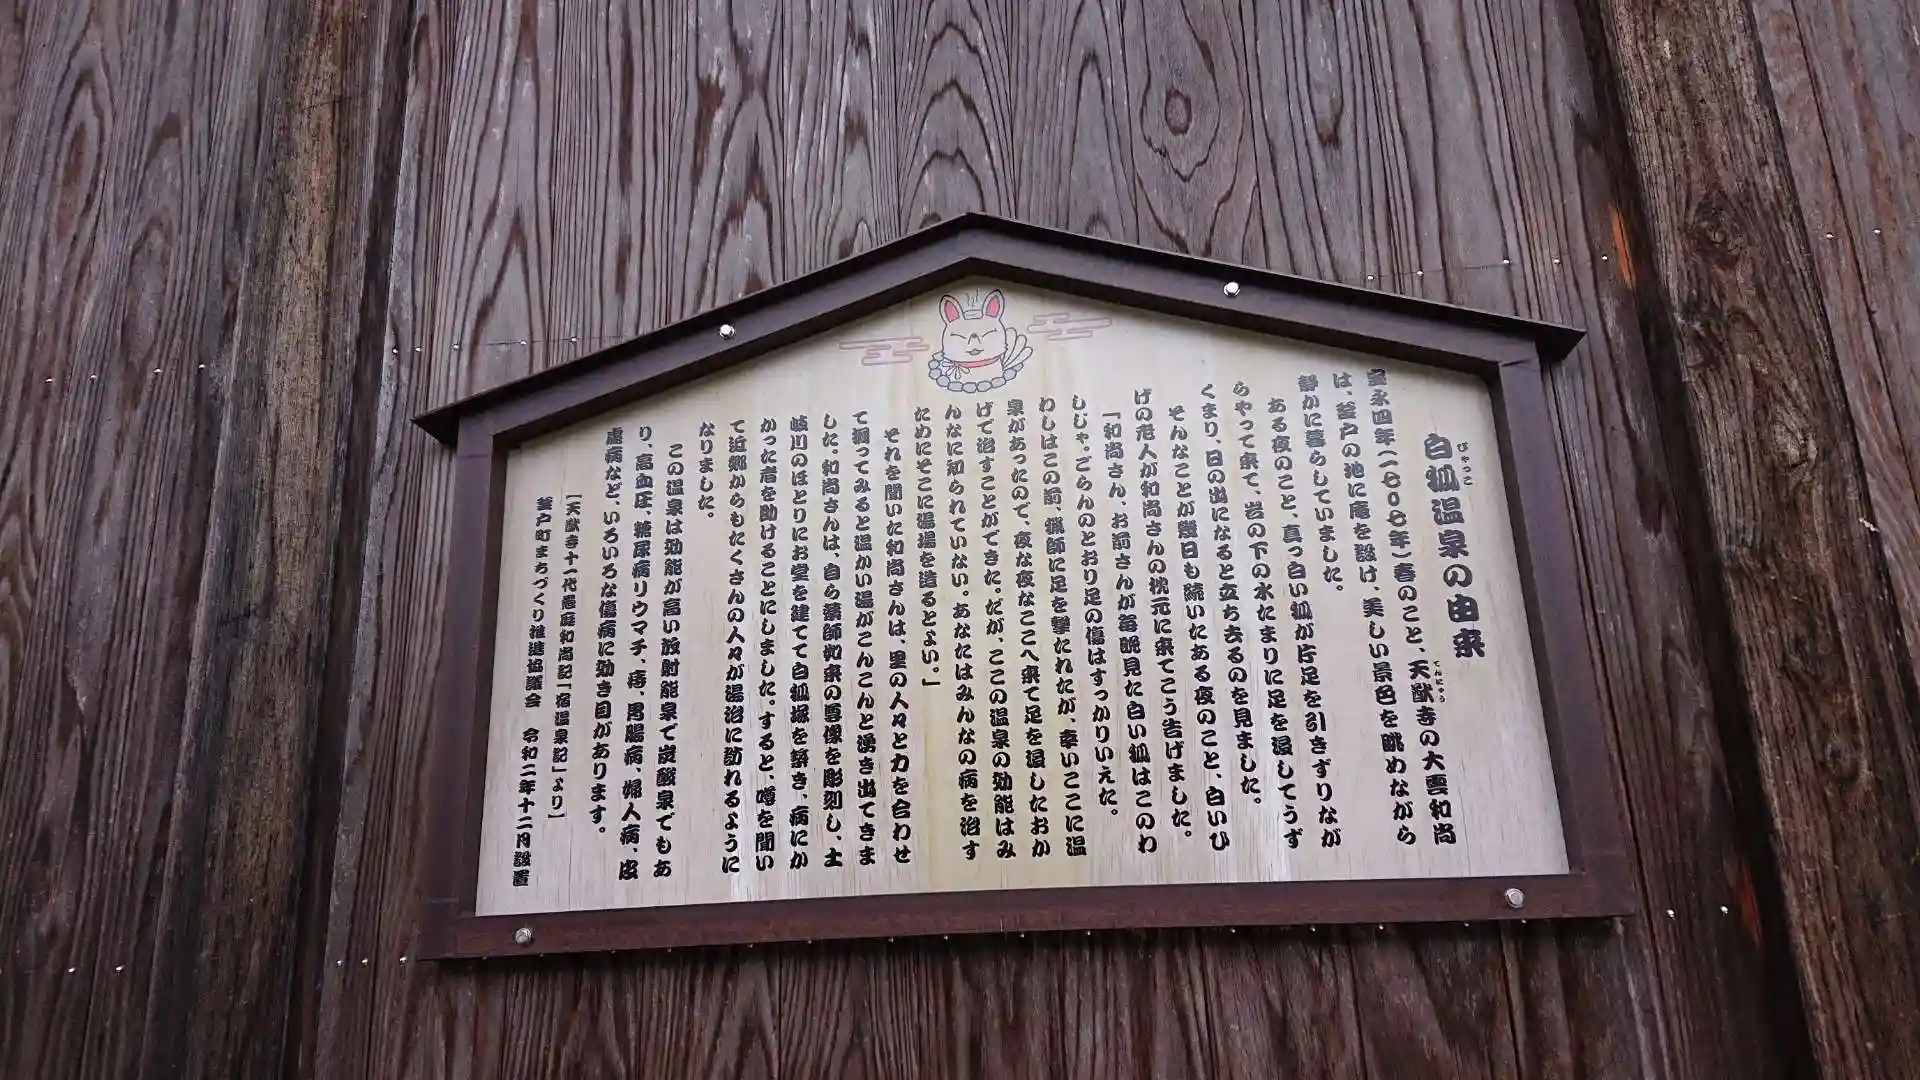 白狐温泉の由来
びゃっこ
宝永四年(一七〇七年)春のこと、天猷寺の大雲和尚
てんにゅう
は、釜戸の地に庵を設け、美しい景色を眺めながら
静かに暮らしていました。
ある夜のこと、真っ白い狐が片足を引きずりなが
らやって来て、岩の下の水たまりに足を浸してうず
くまり、日の出になると立ち去るのを見ました。
そんなことが幾日も続いたある夜のこと、白いひ
げの老人が和尚さんの枕元に来てこう告げました。
「和尚さん、お前さんが毎晩見た白い狐はこのわ
しじゃ。ごらんのとおり足の傷はすっかりいえた。
わしはこの前、猟師に足を撃たれたが、幸いここに温
泉があったので、夜な夜なここへ来て足を浸したおか
げで治すことができた。だが、ここの温泉の効能はみ
んなに知られていない。あなたはみんなの病を治す
ためにそこに湯場を造るとよい。」
それを聞いた和尚さんは、里の人々と力を合わせ
て掘ってみると温かい湯がこんこんと湧き出てきま
した。和尚さんは、自ら薬師如来の尊像を彫刻し、土
岐川のほとりにお堂を建てて白狐塚を築き、病にか
かった者を助けることにしました。すると、噂を聞い
て近郷からもたくさんの人々が湯治に訪れるように
なりました。
この温泉は効能が高い放射能泉で炭酸泉でもあ
り、高血圧、糖尿病リウマチ、痔、胃腸病、婦人病、皮
膚病など、いろいろな傷病に効き目があります。
【天猷寺十一代愚庭和尚記「宿温泉記」より】
釜戸町まちづくり推進協議会 令和二年十二月設置